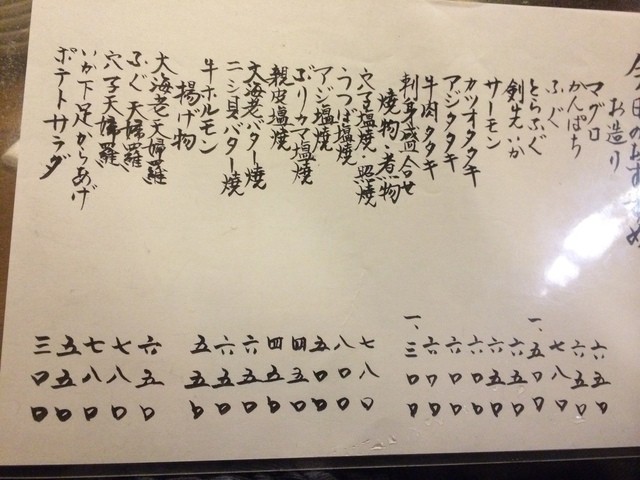 今日のおすすめ
お造り
マグロ 六五〇
かんぱち 六五〇
ふぐ 七八〇
とらふぐ 一、五〇〇
剣先いか 六五〇
サーモン 六五〇
カツオタタキ 六〇〇
アジタタキ 六〇〇
牛肉タタキ 六〇〇
刺身盛合せ 一、三〇〇
焼物・煮物
穴子塩焼・照焼 七八〇
うつぼ塩焼 八〇〇
アジ塩焼 五〇〇
ぶりカマ塩焼 四五〇
親皮塩焼 四五〇
大海老バター焼 六五〇
ニシ貝バター焼 六五〇
牛ホルモン 五五〇
揚げ物
大海老天婦羅 六五〇
ふぐ天婦羅 七八〇
穴子天婦羅 七八〇
いか下足からあげ 五五〇
ポテトサラダ 三〇〇